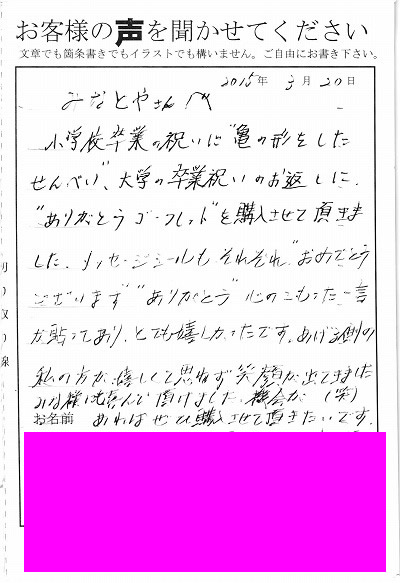 お客様の声を聞かせてください
文章でも箇条書きでもイラストでも構いません。ご自由にお書き下さい。
2015年 3月20日
みなとやさんへ
小学校卒業の祝いに"亀の形をした
せんべい"、大学の卒業祝いのお返しに、
"ありがとうゴーフレット"を購入させて頂きま
した。メッセージシールも それぞれ "おめでとう
ございます" "ありがとう" 心のこもった一言
が貼ってあり、とても嬉しかったです。あげる側の
私の方が嬉しくて思わず笑顔が出てきました(笑)
みな様に喜んで頂けました。機会が
お名前 あればぜひ購入させて頂きたいです。